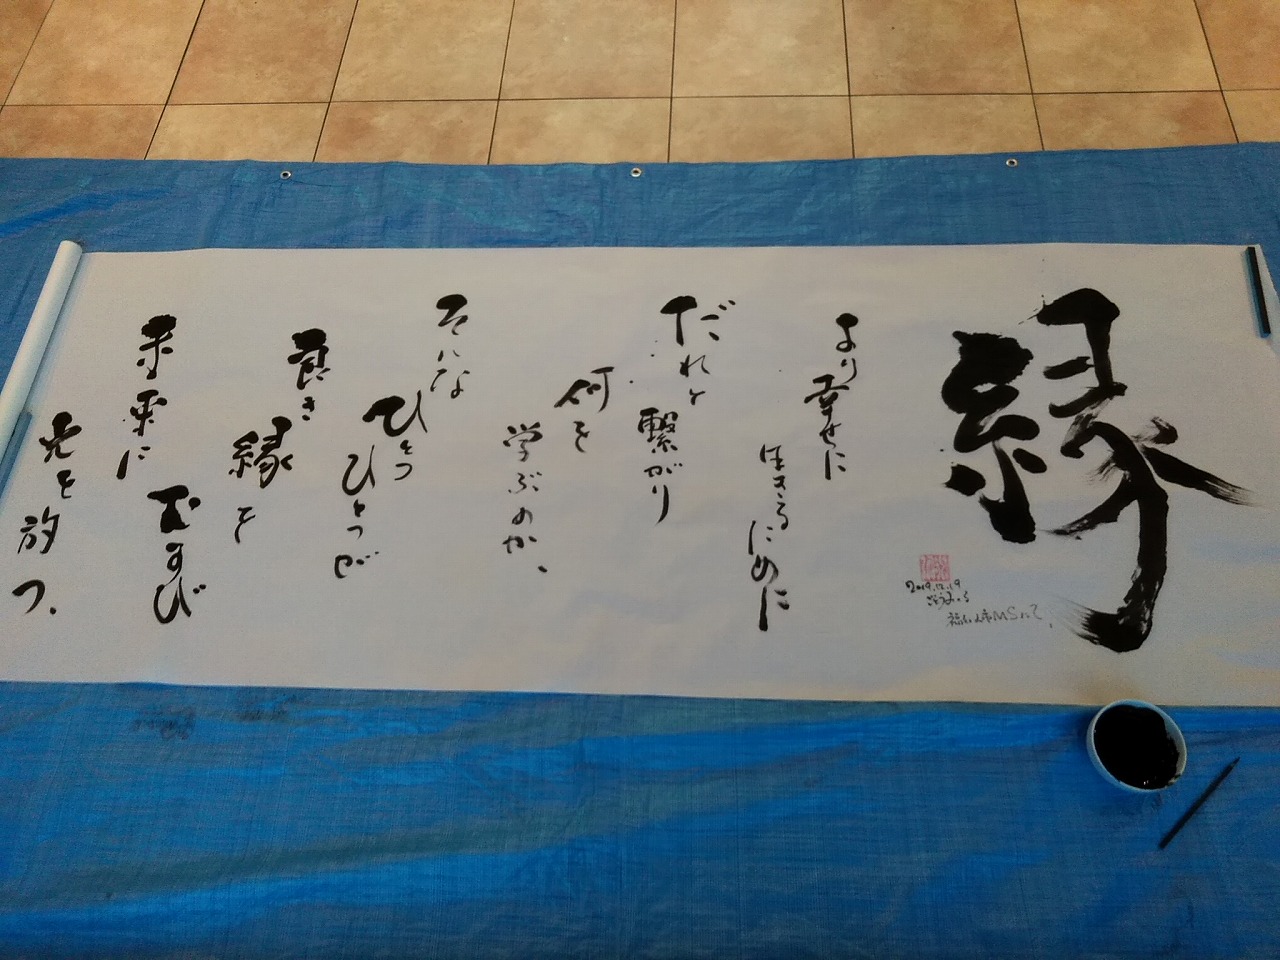 縁
より幸せに
生きるために
だれと
繋がり
何を
学ぶのか、
そんな
ひとつ
ひとつが
良き
縁を
むすび
未来に
光を
放つ.
2019.12.19